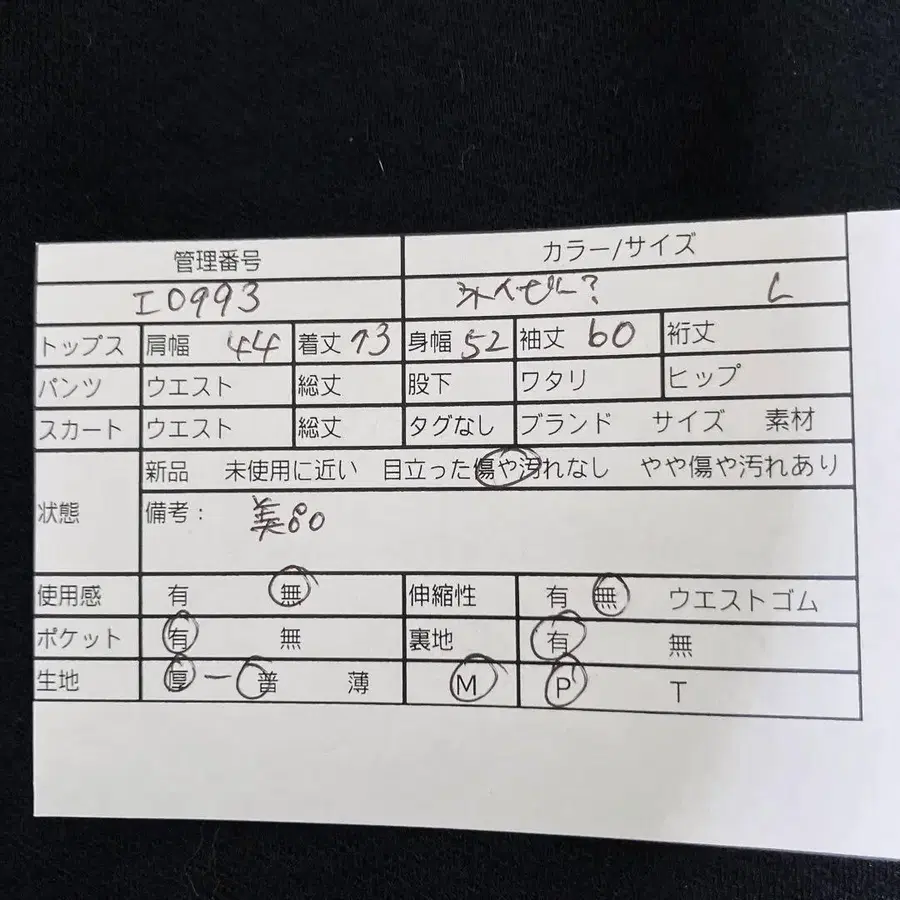 管理番号 カラー/サイズ
I0993 L
トップス 肩幅 44 着丈 73 身幅 52 袖丈 60 裄丈
パンツ ウエスト 総丈 股下 ワタリ ヒップ
スカート ウエスト 総丈 タグなし ブランド サイズ 素材
状態 新品 未使用に近い 目立った傷や汚れなし やや傷や汚れあり
備考: 美80
使用感 有 無 伸縮性 有 無 ウエストゴム
ポケット 有 無 裏地 有 無
生地 厚 ー 普 薄 M P T